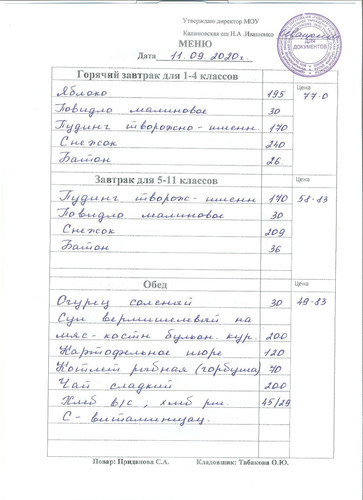 Утверждаю директор МОУ
Калиновская сш Н.А. Иваненко
ДЛЯ ДОКУМЕНТОВ
МЕНЮ
Дата 11.09.2020г.
Горячий завтрак для 1-4 классов Цена
Яблоко 195 77-0
Повидло малиновое 30
Пудинг творожно-пшенн. 170
Снежок 240
Батон 26
Завтрак для 5-11 классов Цена
Пудинг творож-пшенн 170 58-83
Повидло малиновое 30
Снежок 209
Батон 36
Обед Цена
Огурец соленый 30 49-83
Суп вермишелевый на
мяс-костн бульон. кур. 200
Картофельное пюре 120
Котлет рыбная (горбуша) 70
Чай сладкий 200
Хлеб в/с ; хлеб рж. 45/29
С-витаминизац.
Повар: Приданова С.А. Кладовщик: Табакова О.Ю.